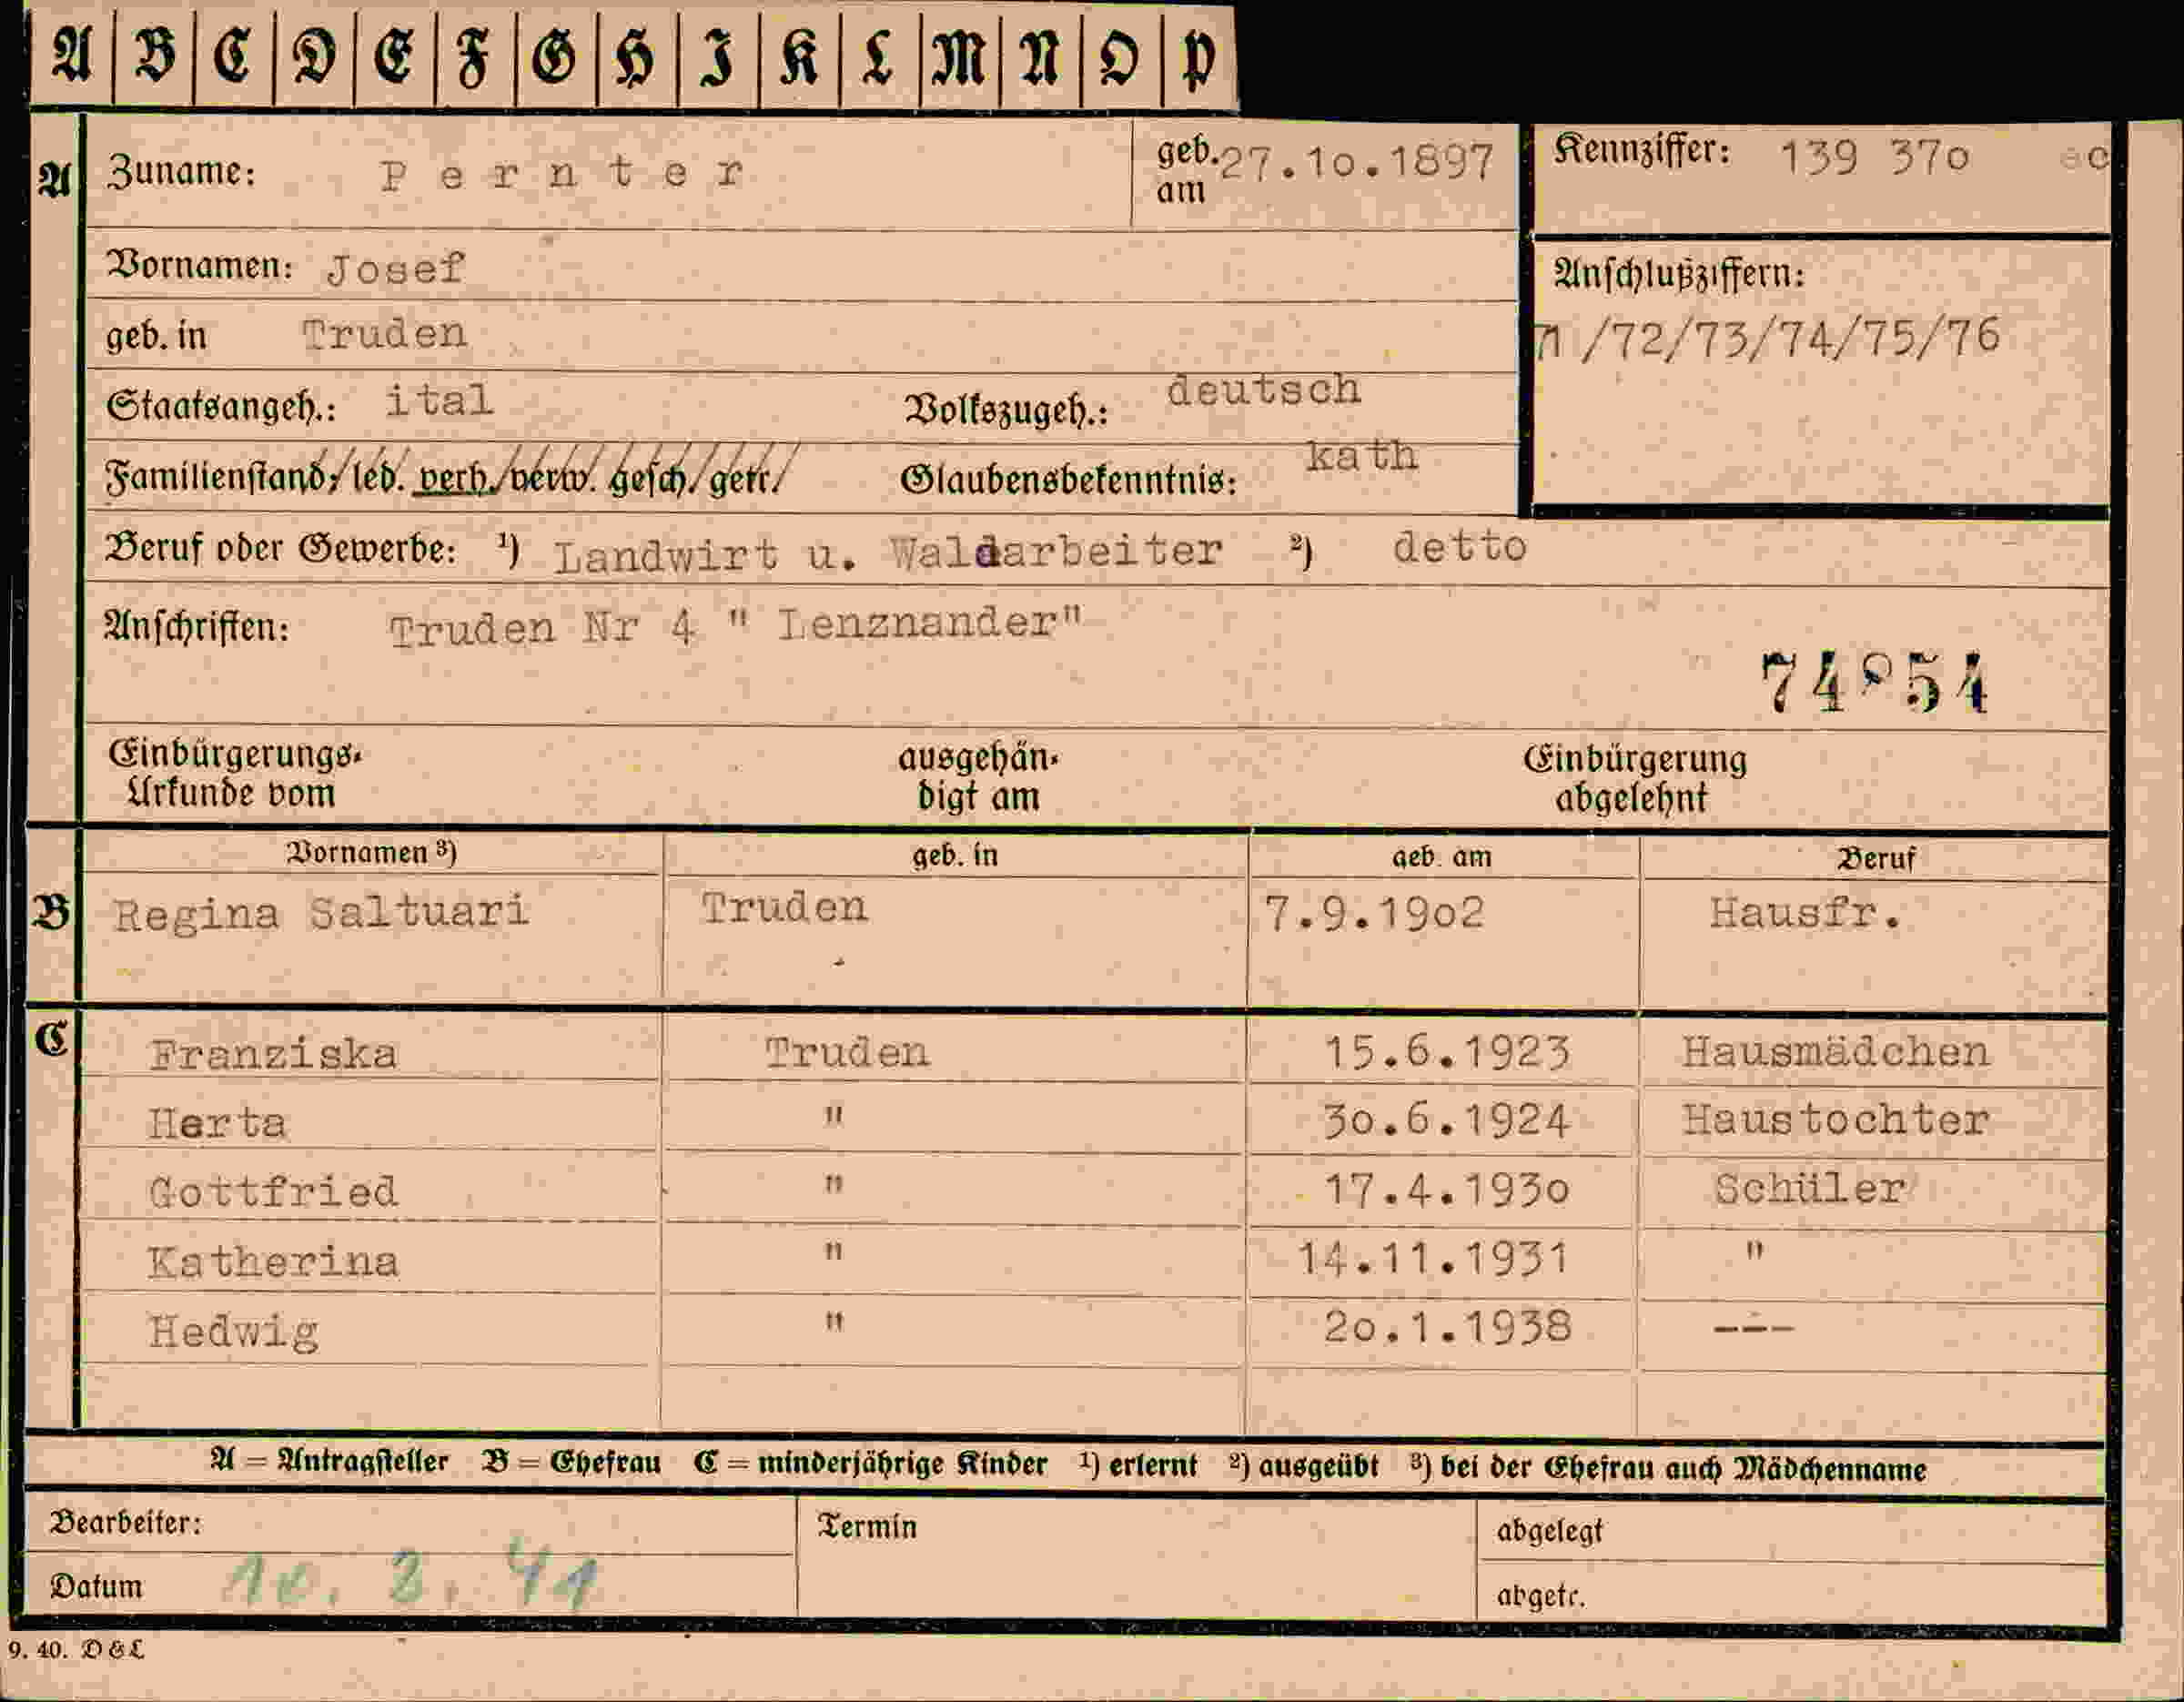 A B C D E F G H I K L M N O P
A Zuname: Pernter geb. am 27.10.1897 Kennziffer: 139 370
Vornamen: Josef Anschlußziffern:
geb. in Truden 71/72/73/74/75/76
Staatsangeh.: ital Volkszugeh.: deutsch
Familienstand: led. verh. verw. gesch. getr. Glaubensbekenntnis: kath
Beruf oder Gewerbe: ¹) Landwirt u. Waldarbeiter ²) detto
Anschriften: Truden Nr 4 " Lenznander"
Einbürgerungs- ausgehän- Einbürgerung
Urkunde vom digt am abgelehnt
Vornamen ³) geb. in geb. am Beruf
B Regina Saltuari Truden 7.9.1902 Hausfr.
C Franziska Truden 15.6.1923 Hausmädchen
Herta " 30.6.1924 Haustochter
Gottfried " 17.4.1930 Schüler
Katherina " 14.11.1931 "
Hedwig " 20.1.1938 ---
A = Antragsteller B = Ehefrau C = minderjährige Kinder ¹) erlernt ²) ausgeübt ³) bei der Ehefrau auch Mädchenname
Bearbeiter: Termin abgelegt
Datum 10. 2. 41 abgetr.
9. 40. D & L